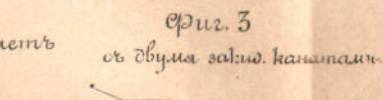 Фиг. 3
съ двумя закид. канатами.